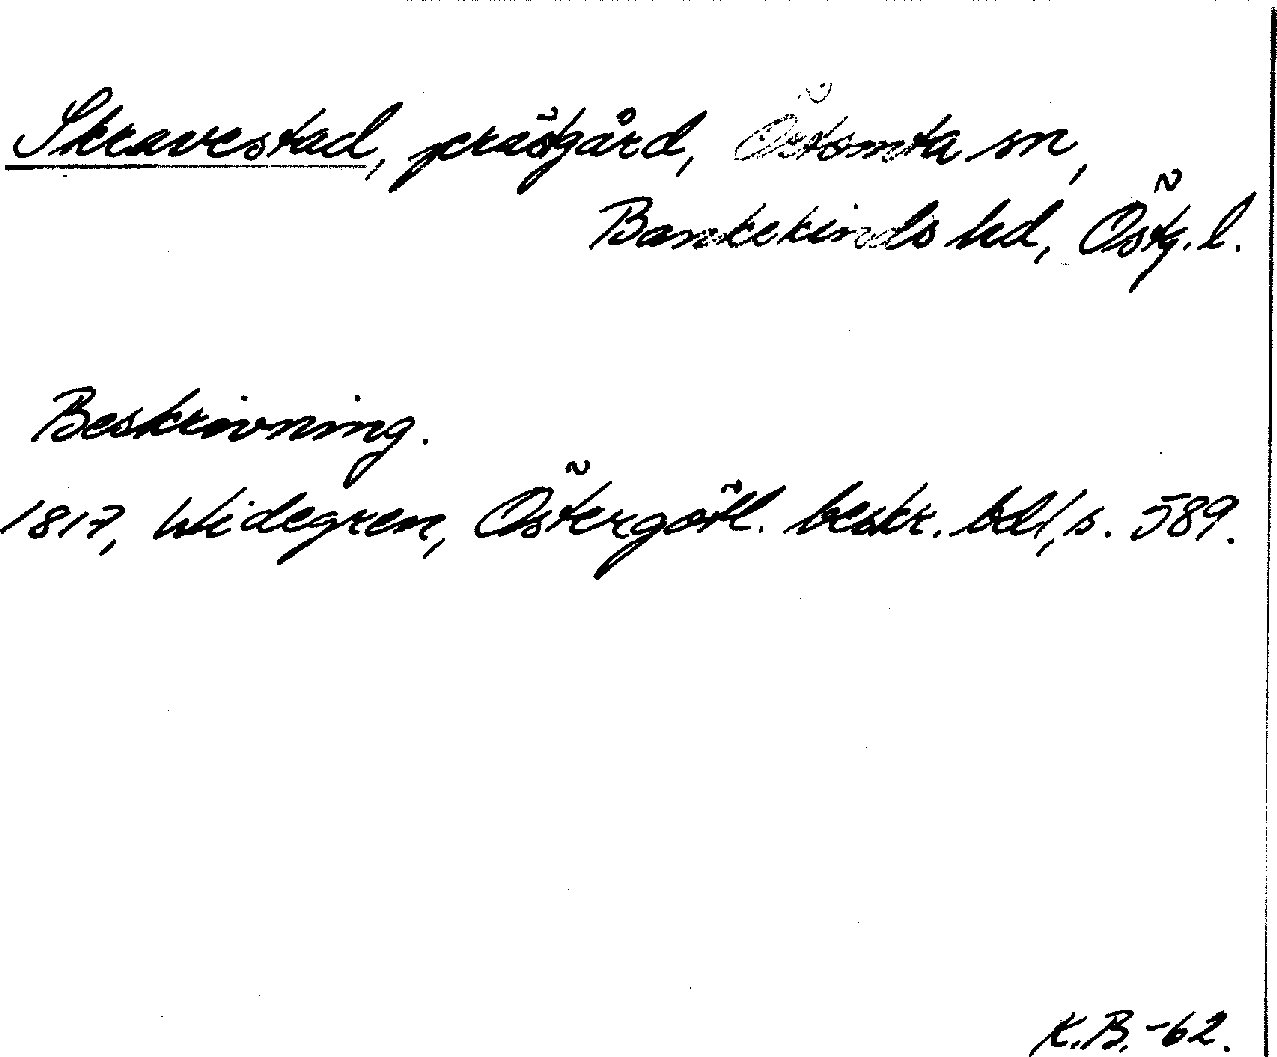 Skravestad, prästgård, Östomta sn,
Bankekinds hd, Östg. l.
Beskrivning.
1817, Widegren, Östergötl. beskr. bd I, s. 589.
K.B.-62.